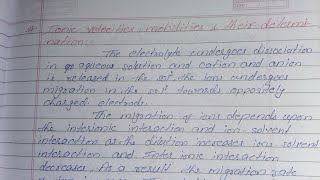 # Ionic velocities, mobilities & their determi-
nation:-
The electrolyte undergoes dissociation
in aqueous solution and cation and anion
is released in the solⁿ, the ions undergoes
migration in the solⁿ towards oppositely
charged electrode.
The migration of ions depends upon
the interionic interaction and ion-solvent
interaction as the dilution increases ions-solvent
interaction and Inter ionic interaction
decreases. As a result the migration rate